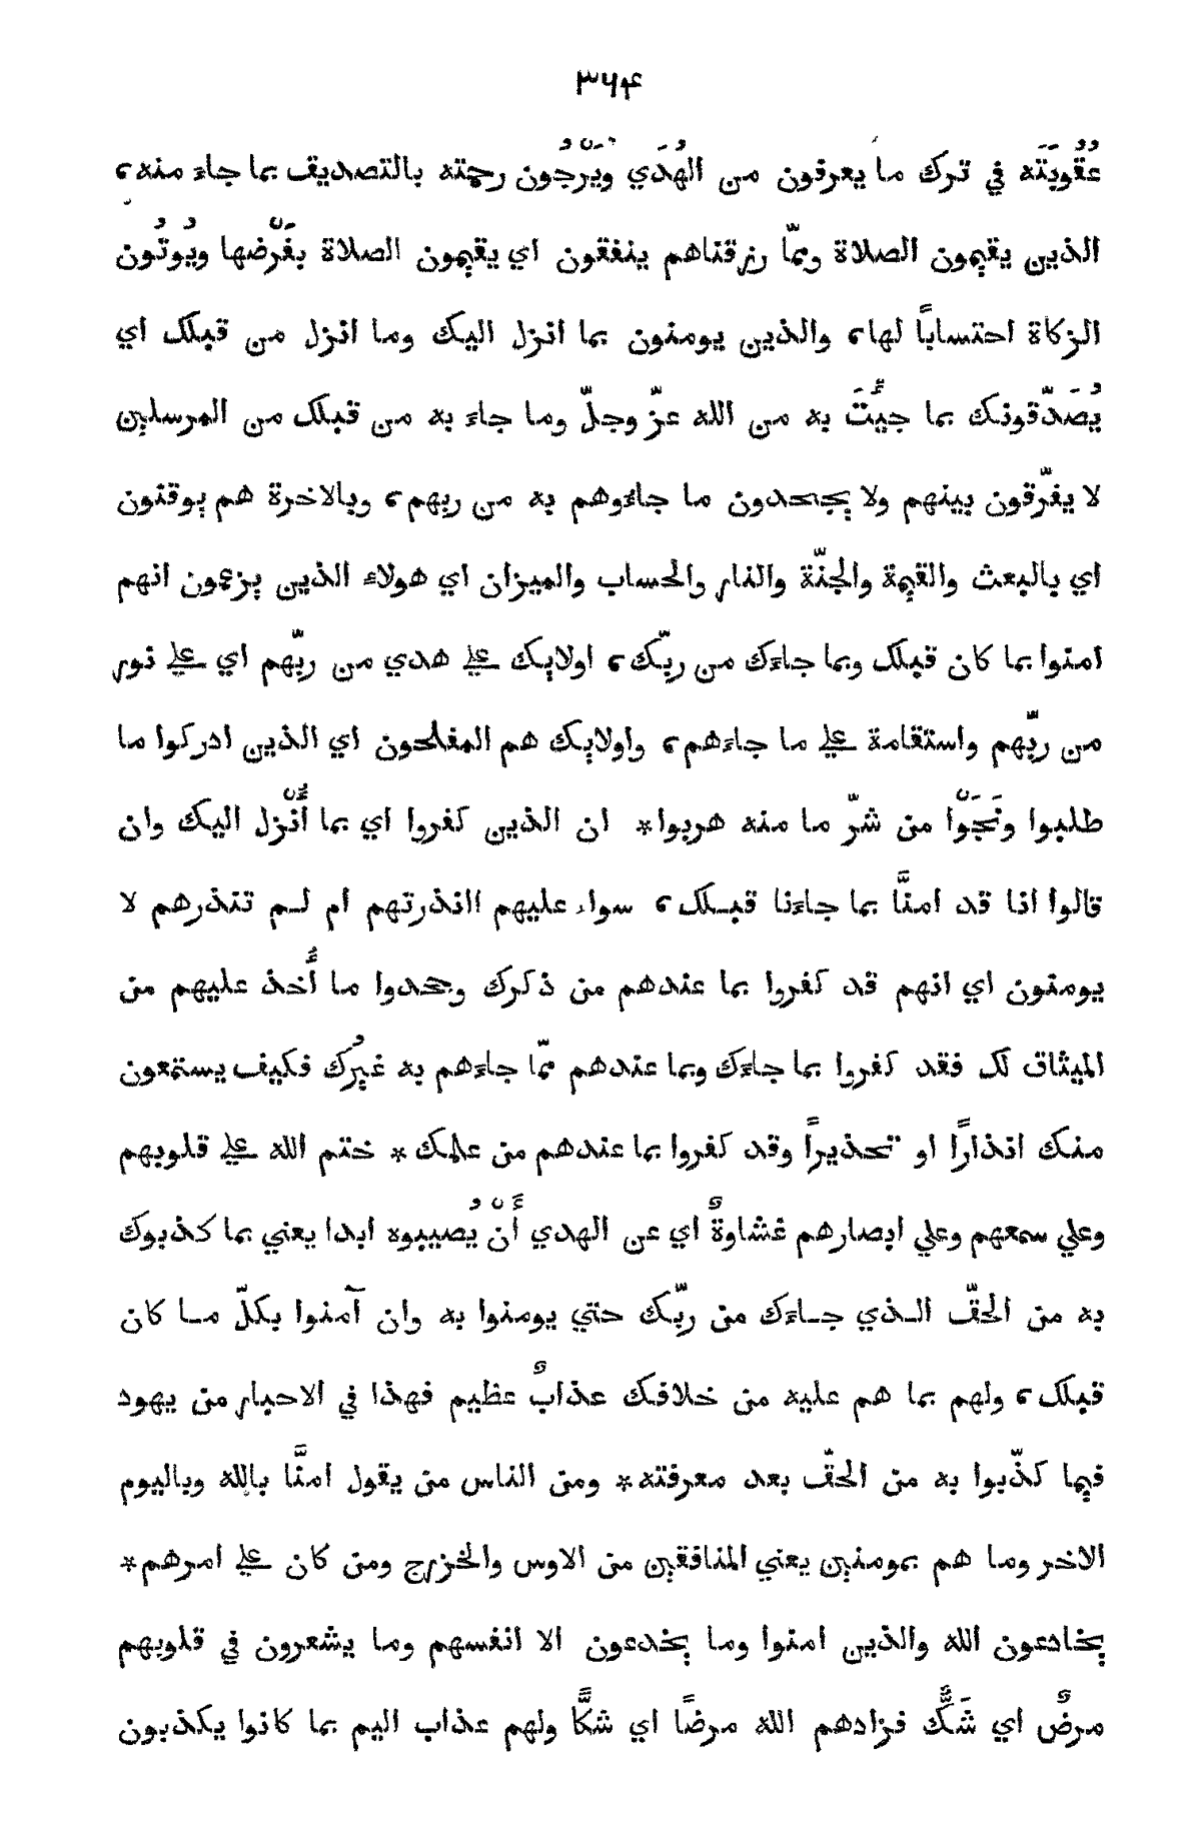 ۳۶۴
عُقُوبَتَه في ترك ما يعرفون من الهُدَي ويَرْجُون رحمته بالتصديق بما جاءَ منه ء
الذين يقيمون الصلاة وممّا رزقناهم ينفقون اي يقيمون الصلاة بفَرْضها ويُوتُون
الزكاة احتساباً لها ء والذين يومنون بما انزل اليك وما انزل من قبلك اي
يُصَدّقونك بما جئُتَ به من الله عزّ وجلّ وما جاءَ به من قبلك من المرسلين
لا يفرّقون بينهم ولا يجحدون ما جاءُوهم به من ربهم ء وبالاخرة هم يوقنون
اي بالبعث والقيمة والجنّة والنار والحساب والميزان اي هولاء الذين يزعمون انهم
امنوا بما كان قبلك وبما جاءَك من ربّك ء اولايك علي هدي من ربّهم اي علي نور
من ربّهم واستقامة علي ما جاءَهم ء واولايك هم المفلحون اي الذين ادركوا ما
طلبوا ونَجَوْا من شرّ ما منه هربوا * ان الذين كفروا اي بما أُنْزل اليك وان
قالوا انا قد امنَّا بما جاءَنا قبلك ء سواء عليهم اانذرتهم ام لم تنذرهم لا
يومنون اي انهم قد كفروا بما عندهم من ذكرك وجحدوا ما أُخذ عليهم من
الميثاق لك فقد كفروا بما جاءَك وبما عندهم ممّا جاءَهم به غيرُك فكيف يستمعون
منك انذارًا او تحذيراً وقد كفروا بما عندهم من علمك * ختم الله علي قلوبهم
وعلي سمعهم وعلي ابصارهم غشاوةٌ اي عن الهدي أَنْ يُصيبوه ابدا يعني بما كذبوك
به من الحقّ الذي جاءَك من ربّك حتي يومنوا به وان آمنوا بكلّ ما كان
قبلك ء ولهم بما هم عليه من خلافك عذابٌ عظيم فهذا في الاحبار من يهود
فيما كذّبوا به من الحقّ بعد معرفته * ومن الناس من يقول امنَّا بالله وباليوم
الاخر وما هم بمومنين يعني المنافقين من الاوس والخزرج ومن كان علي امرهم *
يخادعون الله والذين امنوا وما يخدعون الا انفسهم وما يشعرون في قلوبهم
مرضٌ اي شَكٌّ فزادهم الله مرضًا اي شكًّا ولهم عذاب اليم بما كانوا يكذبون